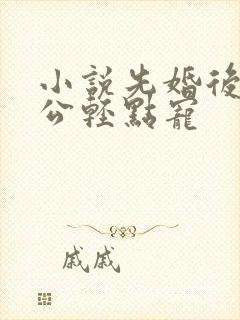 小說先婚後
公輕點寵
戚戚